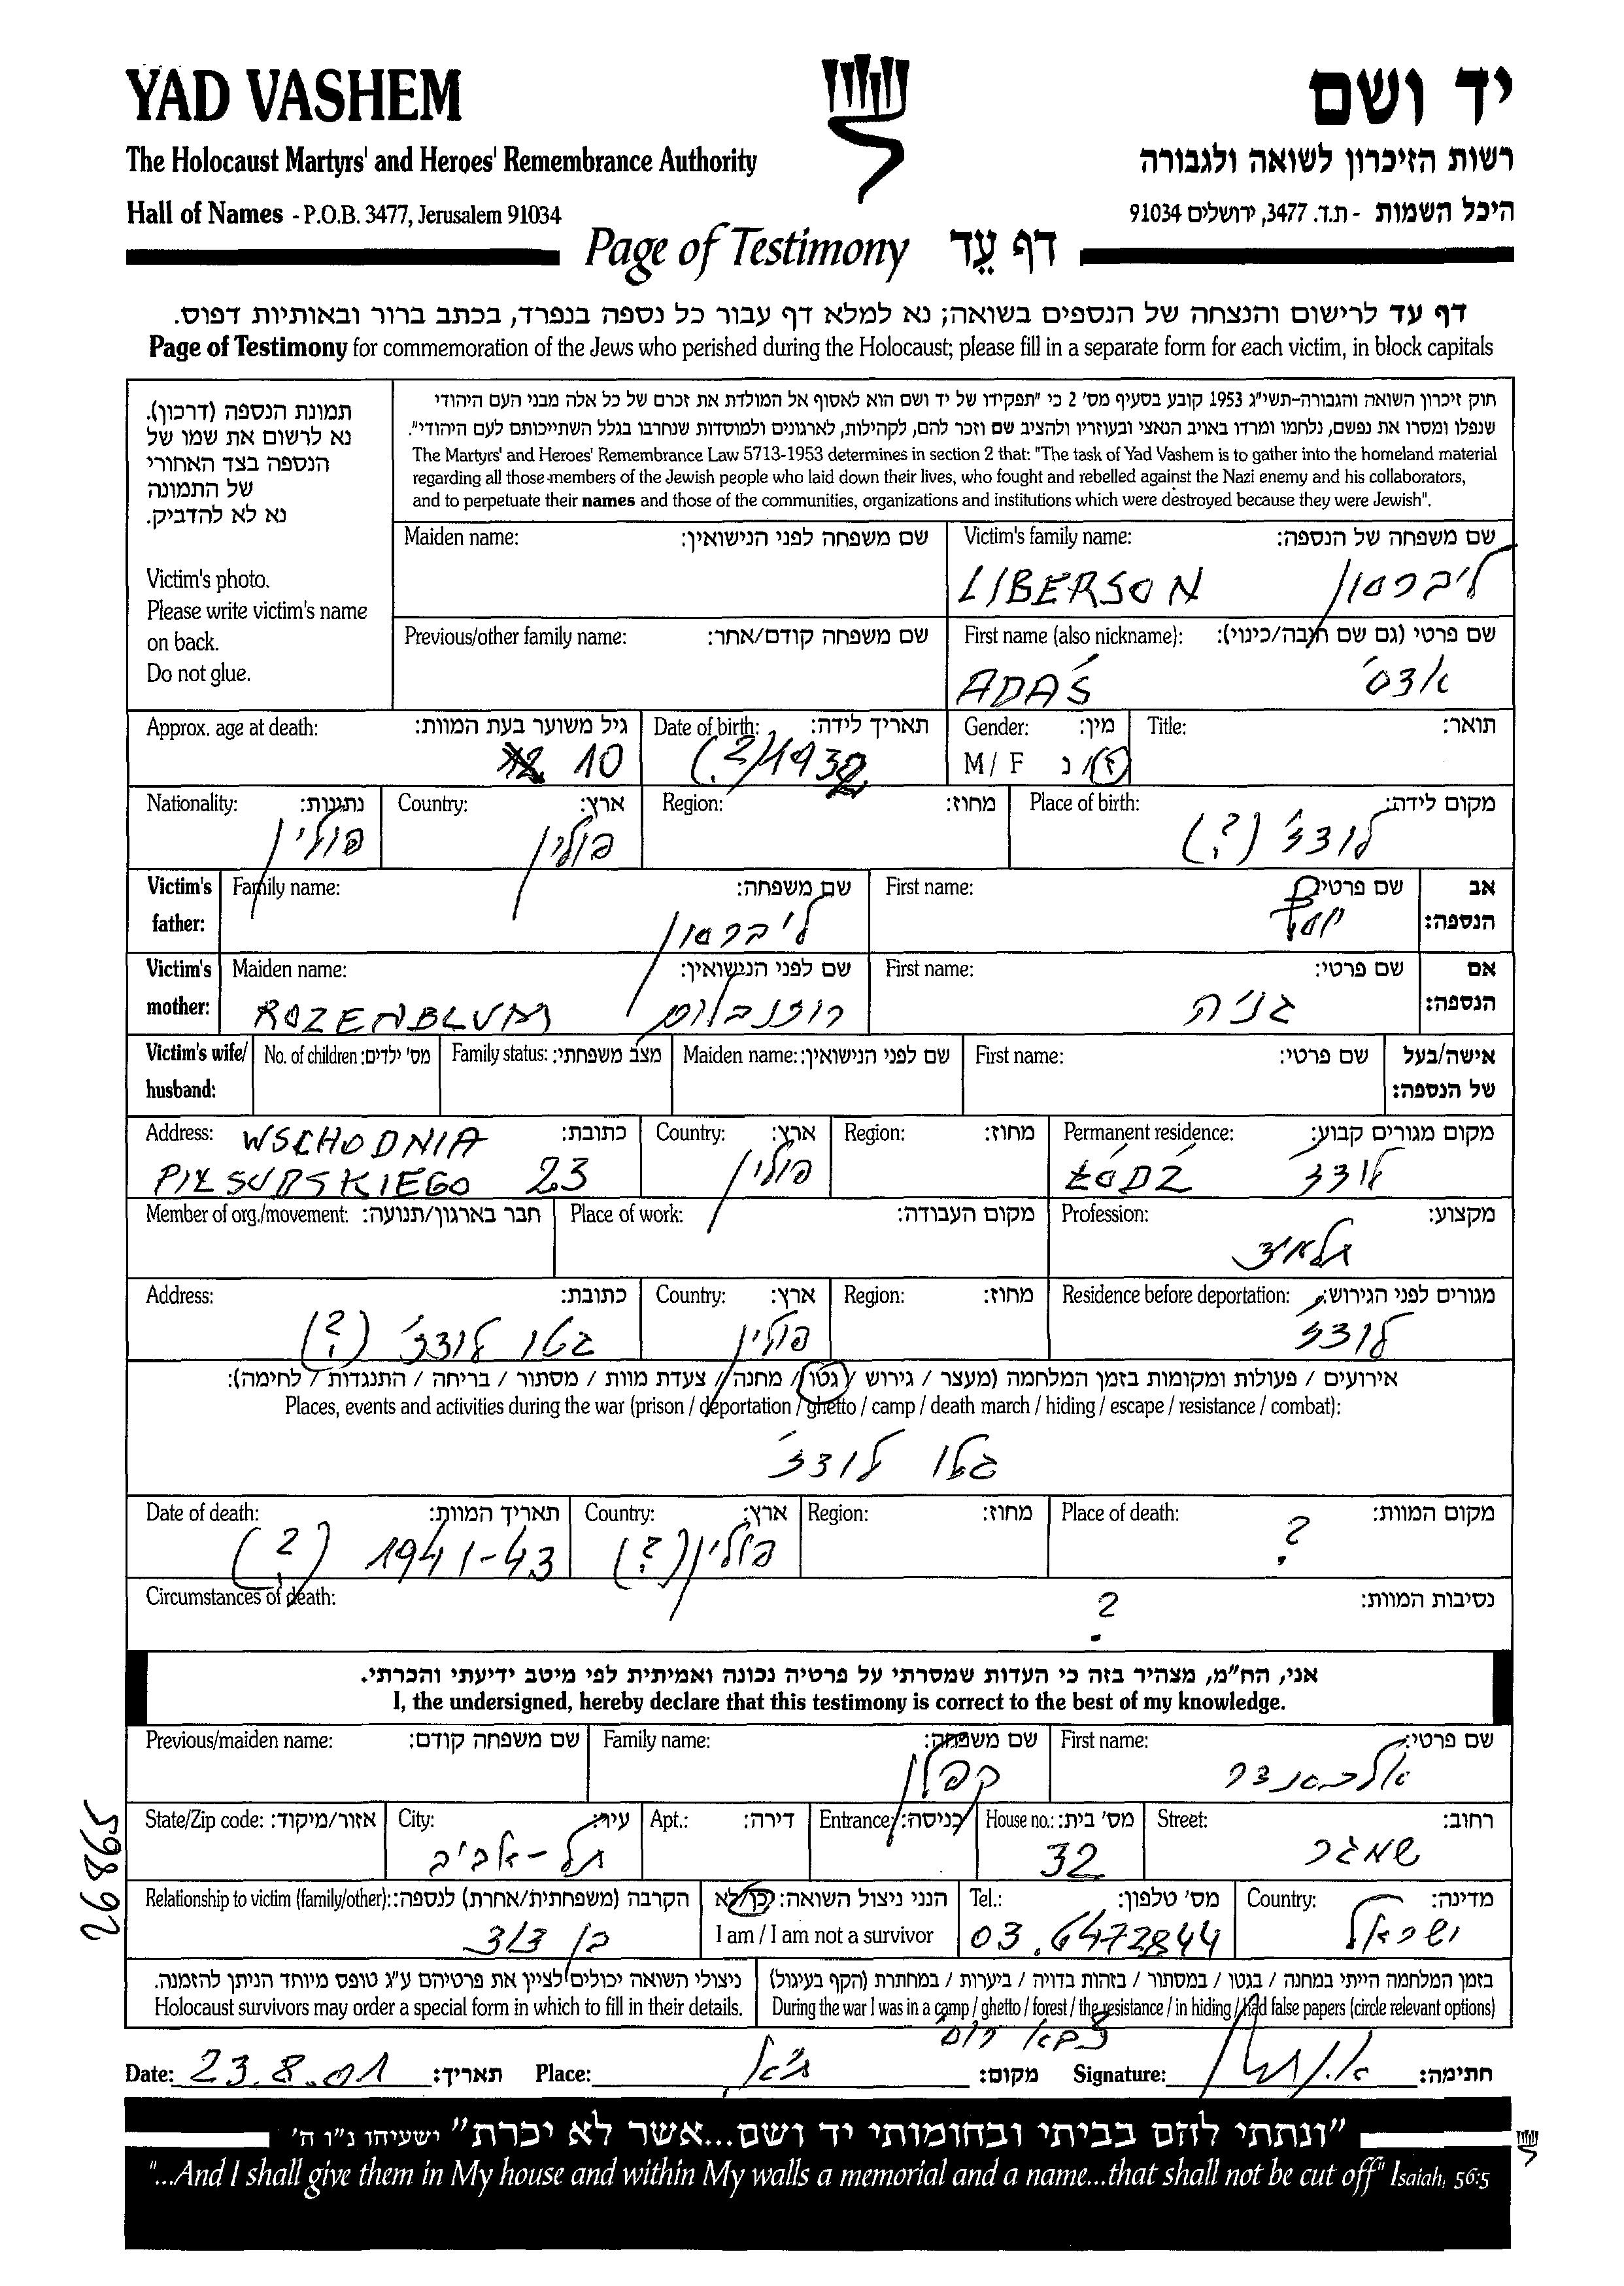 YAD VASHEM
יד ושם
The Holocaust Martyrs' and Heroes' Remembrance Authority
רשות הזיכרון לשואה ולגבורה
Hall of Names - P.O.B. 3477, Jerusalem 91034
היכל השמות - ת.ד. 3477, ירושלים 91034
Page of Testimony דף עֵד
דף עד לרישום והנצחה של הנספים בשואה; נא למלא דף עבור כל נספה בנפרד, בכתב ברור ובאותיות דפוס.
Page of Testimony for commemoration of the Jews who perished during the Holocaust; please fill in a separate form for each victim, in block capitals
תמונת הנספה (דרכון).
נא לרשום את שמו של
הנספה בצד האחורי
של התמונה
נא לא להדביק.
Victim's photo.
Please write victim's name
on back.
Do not glue.
חוק זיכרון השואה והגבורה-תשי"ג 1953 קובע בסעיף מס' 2 כי "תפקידו של יד ושם הוא לאסוף אל המולדת את זכרם של כל אלה מבני העם היהודי
שנפלו ומסרו את נפשם, נלחמו ומרדו באויב הנאצי ובעוזריו ולהציב שם וזכר להם, לקהילות, לארגונים ולמוסדות שנחרבו בגלל השתייכותם לעם היהודי".
The Martyrs' and Heroes' Remembrance Law 5713-1953 determines in section 2 that: "The task of Yad Vashem is to gather into the homeland material
regarding all those members of the Jewish people who laid down their lives, who fought and rebelled against the Nazi enemy and his collaborators,
and to perpetuate their names and those of the communities, organizations and institutions which were destroyed because they were Jewish".
Maiden name: שם משפחה לפני הנישואין:
Victim's family name: שם משפחה של הנספה:
LIBERSON ליברסון
Previous/other family name: שם משפחה קודם/אחר:
First name (also nickname): שם פרטי (גם שם חיבה/כינוי):
ADAŚ אדס'
Approx. age at death: גיל משוער בעת המוות:
10
Date of birth: תאריך לידה:
(?) 1932
Gender: מין:
M / F ז / נ
Title: תואר:
Nationality: נתינות:
פולין
Country: ארץ:
פולין
Region: מחוז:
Place of birth: מקום לידה:
לודז' (?)
Victim's father: אב הנספה:
Family name: שם משפחה:
ליברסון
First name: שם פרטי:
יוסף
Victim's mother: אם הנספה:
Maiden name: שם לפני הנישואין:
ROZENBLUM רוזנבלום
First name: שם פרטי:
גניה
Victim's wife/ husband: אישה/בעל של הנספה:
No. of children: מס' ילדים:
Family status: מצב משפחתי:
Maiden name: שם לפני הנישואין:
First name: שם פרטי:
Address: כתובת:
WSCHODNIA
PIŁSUDSKIEGO 23
Country: ארץ:
פולין
Region: מחוז:
Permanent residence: מקום מגורים קבוע:
ŁÓDŹ לודז
Member of org./movement: חבר בארגון/תנועה:
Place of work: מקום העבודה:
Profession: מקצוע:
תלמיד
Address: כתובת:
גטו לודז' (?)
Country: ארץ:
פולין
Region: מחוז:
Residence before deportation: מגורים לפני הגירוש:
לודז'
אירועים / פעולות ומקומות בזמן המלחמה (מעצר / גירוש / גטו / מחנה / צעדת מוות / מסתור / בריחה / התנגדות / לחימה):
Places, events and activities during the war (prison / deportation / ghetto / camp / death march / hiding / escape / resistance / combat):
גטו לודז'
Date of death: תאריך המוות:
(?) 1941-43
Country: ארץ:
פולין (?)
Region: מחוז:
Place of death: מקום המוות:
?
Circumstances of death: נסיבות המוות:
?
אני, הח"מ, מצהיר בזה כי העדות שמסרתי על פרטיה נכונה ואמיתית לפי מיטב ידיעתי והכרתי.
I, the undersigned, hereby declare that this testimony is correct to the best of my knowledge.
Previous/maiden name: שם משפחה קודם:
Family name: שם משפחה:
קפלן
First name: שם פרטי:
אלכסנדר
State/Zip code: אזור/מיקוד:
City: עיר:
תל-אביב
Apt.: דירה:
Entrance: כניסה:
House no.: מס' בית:
32
Street: רחוב:
שמגר
Relationship to victim (family/other): הקרבה (משפחתית/אחרת) לנספה:
בן דוד
הנני ניצול השואה: כן/לא
I am / I am not a survivor
Tel.: מס' טלפון:
03.6472844
Country: מדינה:
ישראל
ניצולי השואה יכולים לציין את פרטיהם ע"ג טופס מיוחד הניתן להזמנה.
Holocaust survivors may order a special form in which to fill in their details.
בזמן המלחמה הייתי במחנה / בגטו / במסתור / בזהות בדויה / ביערות / במחתרת (הקף בעיגול)
During the war I was in a camp / ghetto / forest / the resistance / in hiding / had false papers (circle relevant options)
צבא רוסי
Date: 23.8.01 תאריך:
Place: ת"א מקום:
Signature: חתימה:
"ונתתי להם בביתי ובחומותי יד ושם...אשר לא יכרת" ישעיהו נ"ו ה'
"...And I shall give them in My house and within My walls a memorial and a name...that shall not be cut off" Isaiah, 56:5
26865